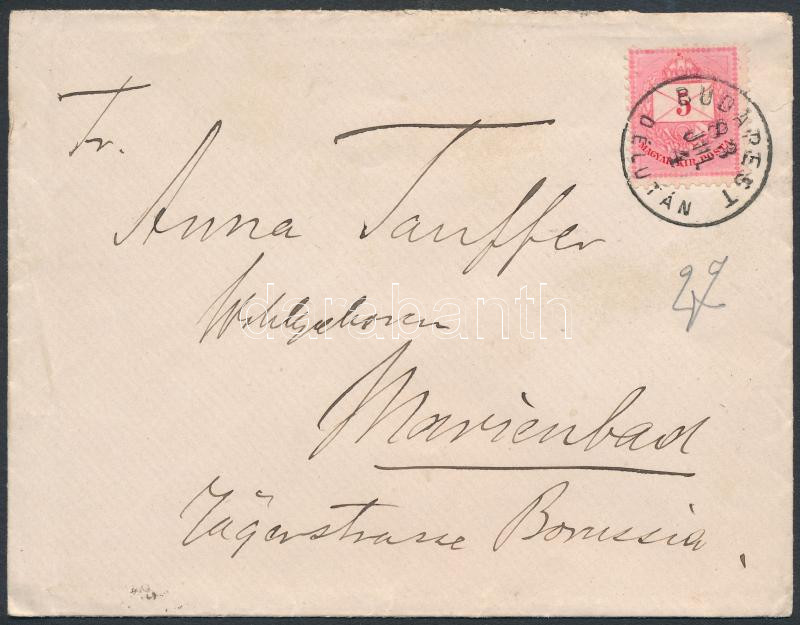 Fr.
Anna Tauffer
Wohlgeboren
Marienbad
Jägerstrasse Borussia
5
MAGYAR KIR. POSTA
BUDAPEST
DÉLUTÁN
JUL
27
darabanth